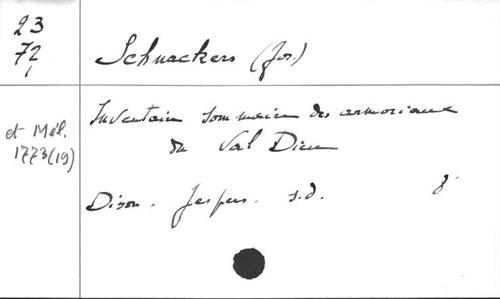 23
72
Schnackers (Jos.)
et Mél.
1773(19)
Inventaire sommaire des armoriaux
du Val Dieu
Dison. Jespers. s.d. 8°